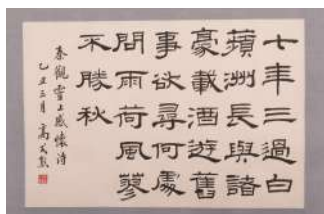 七年三過白
蘋洲長與諸
豪載酒遊舊
事欲尋何處
問雨荷風蓼
不勝秋
秦觀霅上感懷詩
乙丑三月 高式熊